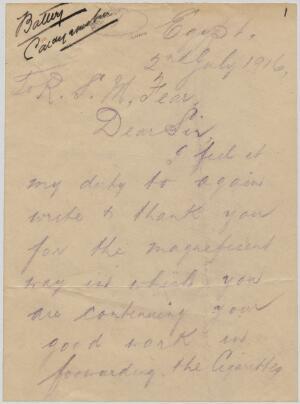 Battery
1
Egypt.
2nd July 1916,
To R. S. M. Fear,
Dear Sir,
I feel it
my duty to again
write & thank you
for the magnificent
way in which you
are continuing your
good work in
forwarding the Cigarettes